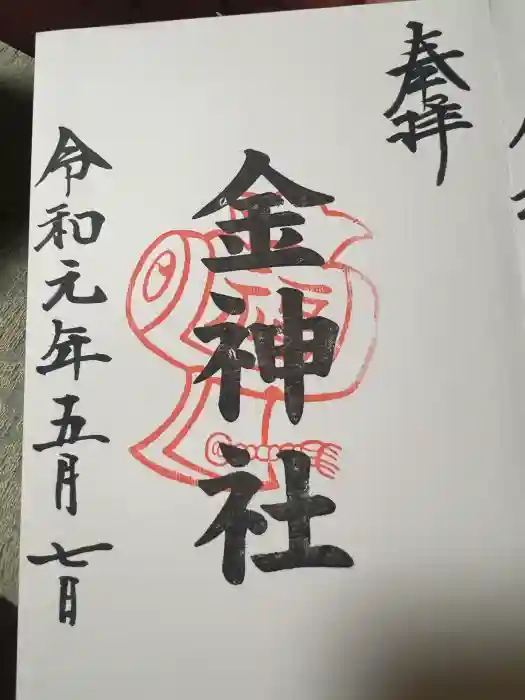 奉拝
金神社
令和元年五月七日